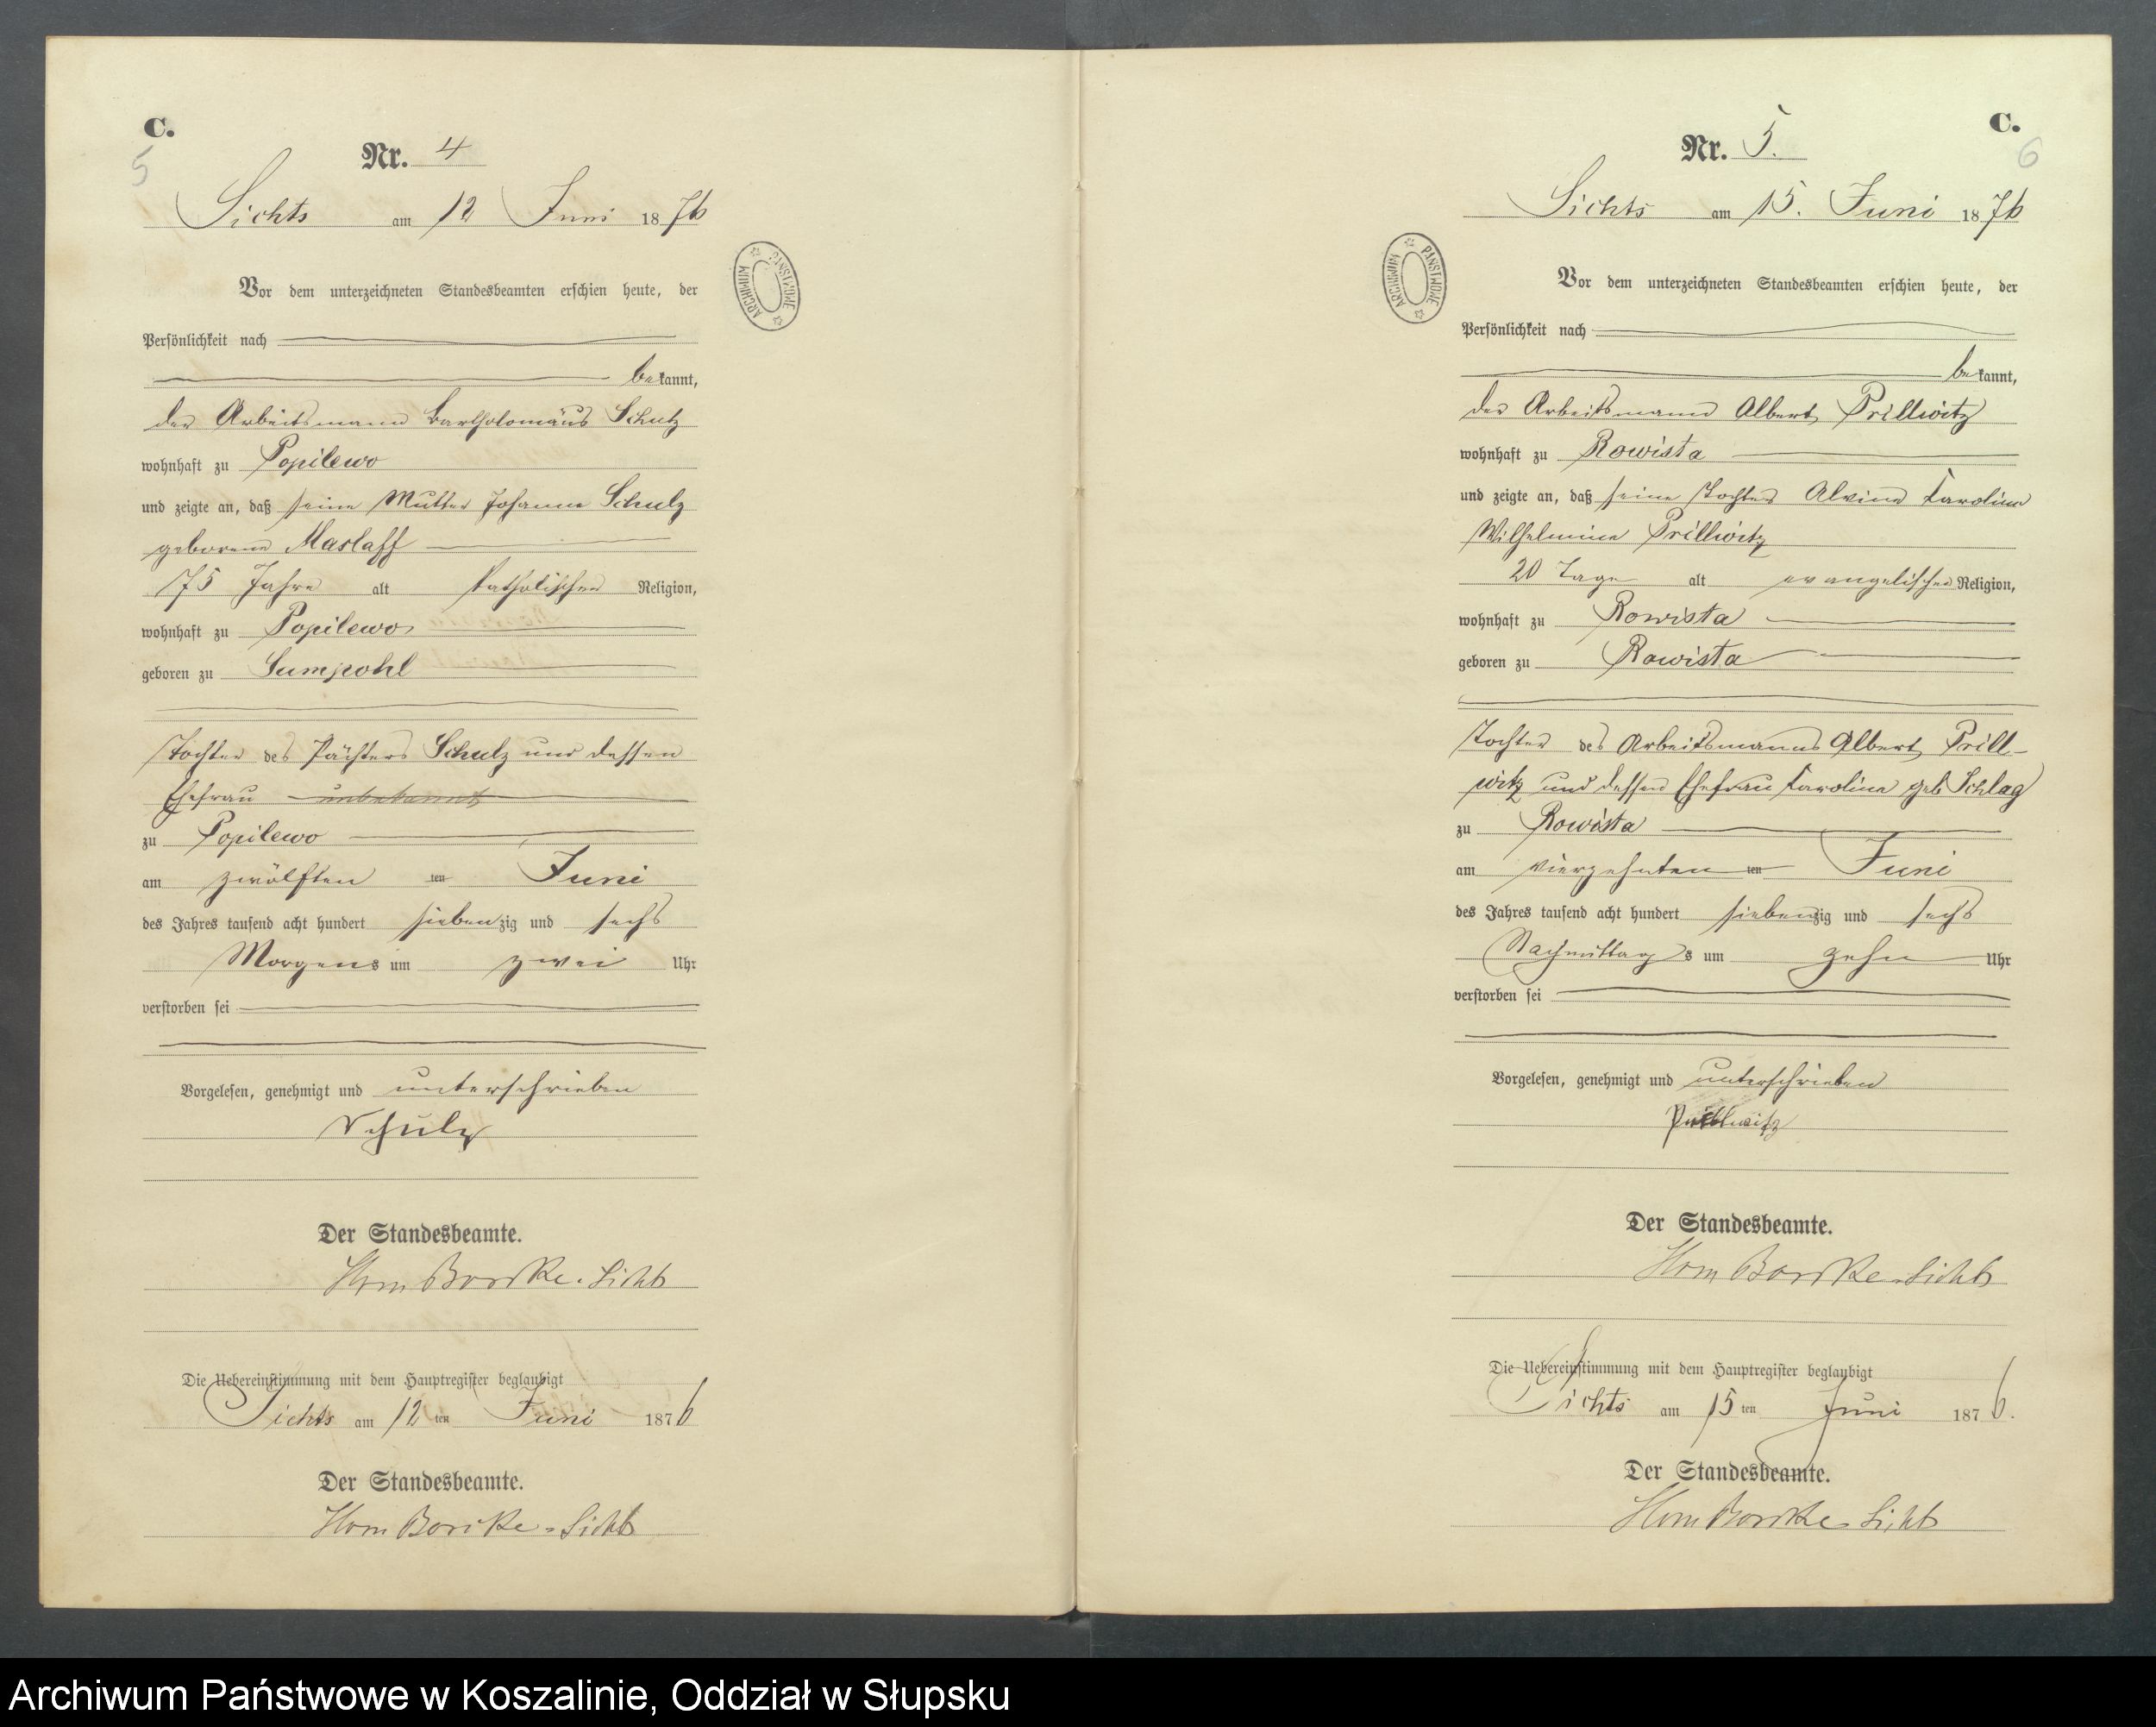 C.
5
Nr. 4
Sichts am 12 Juni 1876
Vor dem unterzeichneten Standesbeamten erschien heute, der
Persönlichkeit nach
bekannt,
der Arbeitsmann Bartholomäus Schulz
wohnhaft zu Popilewo
und zeigte an, daß seine Mutter Johanna Schulz
geborene Maslaff
75 Jahre alt katholischer Religion,
wohnhaft zu Popilewo
geboren zu Sumpohl
Tochter des Pächters Schulz und dessen
Ehefrau unbekannt
zu Popilewo
am zwölften ten Juni
des Jahres tausend acht hundert siebenzig und sechs
Morgens um zwei Uhr
verstorben sei
Vorgelesen, genehmigt und unterschrieben
Schulz
Der Standesbeamte.
Die Uebereinstimmung mit dem Hauptregister beglaubigt
Sichts am 12 ten Juni 1876
Der Standesbeamte.
ARCHIWUM PAŃSTWOWE
C.
6
Nr. 5.
Sichts am 15. Juni 1876
Vor dem unterzeichneten Standesbeamten erschien heute, der
Persönlichkeit nach
bekannt,
der Arbeitsmann Albert Prillwitz
wohnhaft zu Rowista
und zeigte an, daß seine Tochter Alvine Karoline
Wilhelmine Prillwitz
20 Tage alt evangelischer Religion,
wohnhaft zu Rowista
geboren zu Rowista
Tochter des Arbeitsmanns Albert Prill-
witz und dessen Ehefrau Karoline geb Schlag
zu Rowista
am vierzehnten ten Juni
des Jahres tausend acht hundert siebenzig und sechs
Nachmittags um zehn Uhr
verstorben sei
Vorgelesen, genehmigt und unterschrieben
Prillwitz
Der Standesbeamte.
Die Uebereinstimmung mit dem Hauptregister beglaubigt
Sichts am 15 ten Juni 1876.
Der Standesbeamte.
ARCHIWUM PAŃSTWOWE
Archiwum Państwowe w Koszalinie, Oddział w Słupsku